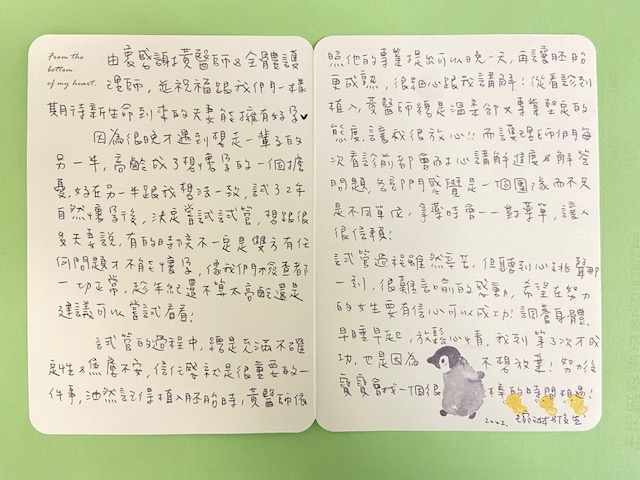 From the
bottom
of my heart.
由衷感謝黃醫師&全體護
理師,並祝福跟我們一樣
期待新生命到來的夫妻能擁有好孕♥
因為很晚才遇到想走一輩子的
另一半,高齡成了想懷孕的一個擔
憂,好在另一半跟我想法一致,試了2年
自然懷孕後,決定嘗試試管,想跟很
多夫妻說,有的時候不一定是雙方有任
何問題才不能懷孕,像我們檢查都
一切正常,趁年紀還不算太高齡還是
建議可以嘗試看看!
試管的過程中,總是充滿不確
定性&焦慮不安,信任感就是很重要的一
件事,油然記得植入胚胎時,黃醫師依
照他的專業提出可以晚一天,再讓胚胎
更成熟,很細心跟我講解!從看診到
植入,黃醫師總是溫柔卻又專業堅定的
態度讓我很放心!!而護理師們每
次看診前都會耐心講解進度&解答
問題,各部門感覺是一個團隊而不
是不同單位,拿藥時會一一對藥單,讓人
很信賴!
試管過程雖然辛苦,但聽到心跳聲那
一刻,很難言喻的感動,希望在努力
的女生要有信心可以成功!調養身體、
早睡早起,放鬆心情,我到第3次才成
功,也是因為不想放棄!努力後
寶寶會找一個很棒的時間相遇!
2022.